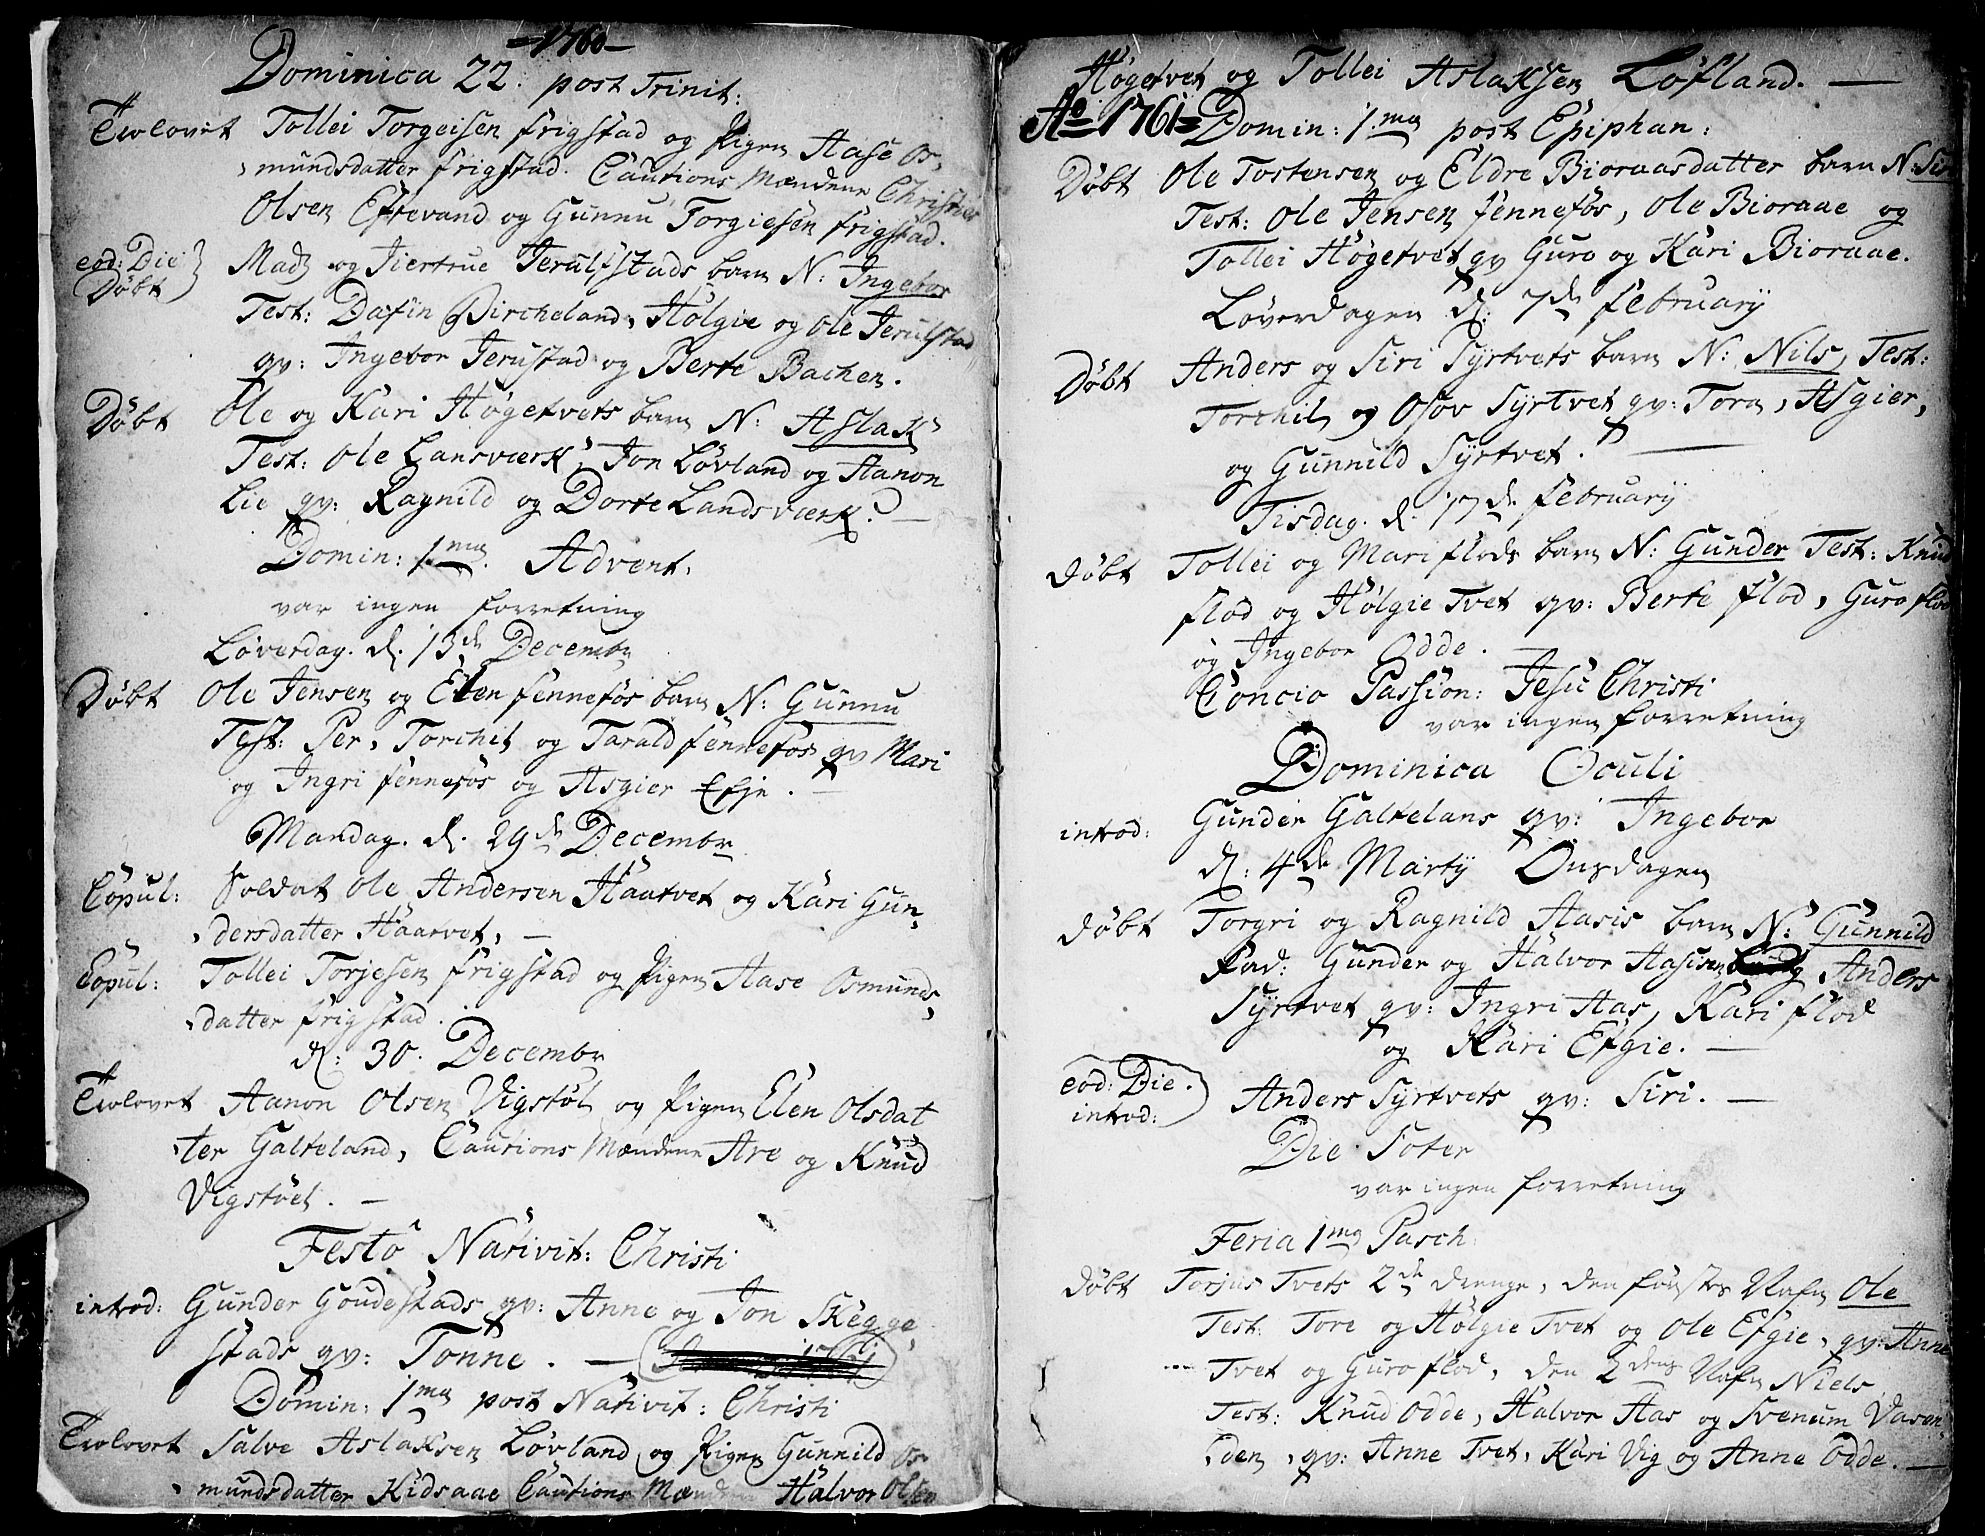 -1760-
Dominica 22. post Trinit:
Trolovet Tollei Torgeisen Frigstad og Pigen Aase Os-
mundsdatter Frigstad. Cautions Mændene Christen
Olsen Eftevand og Gunnu Torgiesen Frigstad.
eod: Die Madz og Jiertrue Jerulfstads barn N: Ingebor
Døbt
Test: Dafin Bircheland, Hölgie og Ole Jerulstad
qv: Ingebor Jerustad og Berte Bachen.
Døbt Ole og Kari Høgetvets barn N: Aslak
Test: Ole Lansværk, Jon Løvland og Aanon
Lie qv: Ragnild og Dorte Landsværk. —
Domin: 1ma Advent.
var ingen forretning
Løverdag. d. 13de Decembr
Døbt Ole Jensen og Elen Fennefos barn N: Gunnu
Test: Per, Torchil og Tarald Fennefos qv Mari
og Ingri Fennefos og Asgier Efje. —
Mandag. d. 29de Decembr
Copul: Soldat Ole Andersen Haatvet og Kari Gun-
dersdatter Haatvet, —
Copul: Tollei Torjesen Frigstad og Pigen Aase Osmunds-
datter Frigstad.
d: 30. Decembr
Trolovet Aanon Olsen Vigstøl og Pigen Elen Olsdat
ter Galteland, Cautions Mændene Are og Knud
Vigstøel. —
Festo Nativit: Christi
introd: Gunder Goudestads qv: Anne og Jon Skegge-
stads qv: Tonne. —
Domin: 1ma post Nativit: Christi
Trolovet Salve Aslaksen Løvland og Pigen Gunnild Os-
mundsdatter Kidsaae Cautions Mændene Halvor Olsen
Høgetvet og Tollei Aslaksen Løfland. —
Ao 1761 Domin: 1ma post Epiphan:
Døbt Ole Tostensen og Eldre Bioraasdatter barn N: Siri
Test: Ole Jensen Fennefos, Ole Bioraae og
Tollei Høgetvet qv Guro og Kari Bioraae.
Løverdagen d: 7de February
Døbt Anders og Siri Syrtvets barn N: Nils, Test:
Torchil og Osov Syrtvet qv: Tora, Asgier,
og Gunnild Syrtvet. —
Tisdag. d. 17de February
Døbt Tollei og Mari Flods barn N: Gunder Test: Knud
Flod og Hölgie Tvet qv: Berte Flod, Guro Flod
og Ingebor Odde. —
Concio Passion: Jesu Christi
var ingen forretning
Dominica Oculi
introd: Gunder Galtelans qv: Ingebor
d: 4de Martij Onsdagen
Døbt Torgri og Ragnild Aasis barn N: Gunnild
Fad: Gunder og Halvor Aasisen Anders
Syrtvet qv: Ingri Aas, Kari Flod
og Kari Efgie. —
eod: Die.
introd: Anders Syrtvets qv: Siri. —
Die Soter
var ingen forretning
Feria 1ma Pasch:
Døbt Torjus Tvets 2de drenge, den førstes Nafn Ole
Test: Tore og Hölgie Tvet og Ole Efgie, qv: Anne
Tvet og Guro Flod, den 2dens Nafn Niels
Test: Knud Odde, Halvor Aas og Svenum Vasen-
den, qv: Anne Tvet, Kari Vig og Anne Odde. —